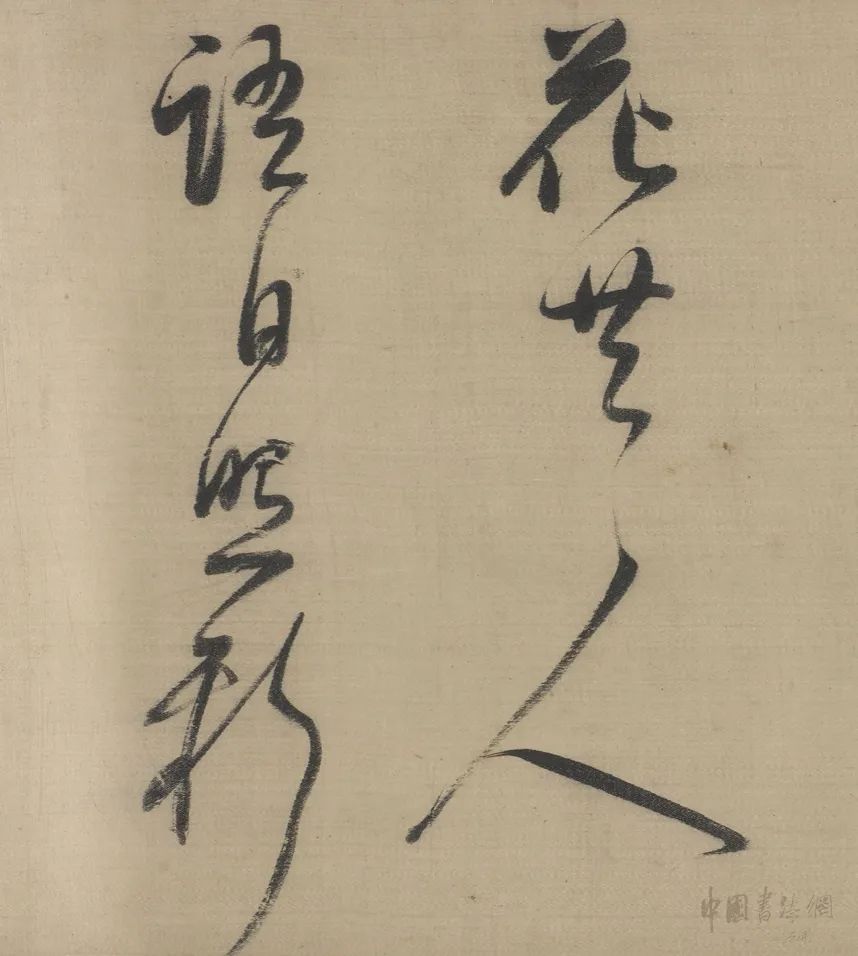 花共人
語日照新
中國書法網